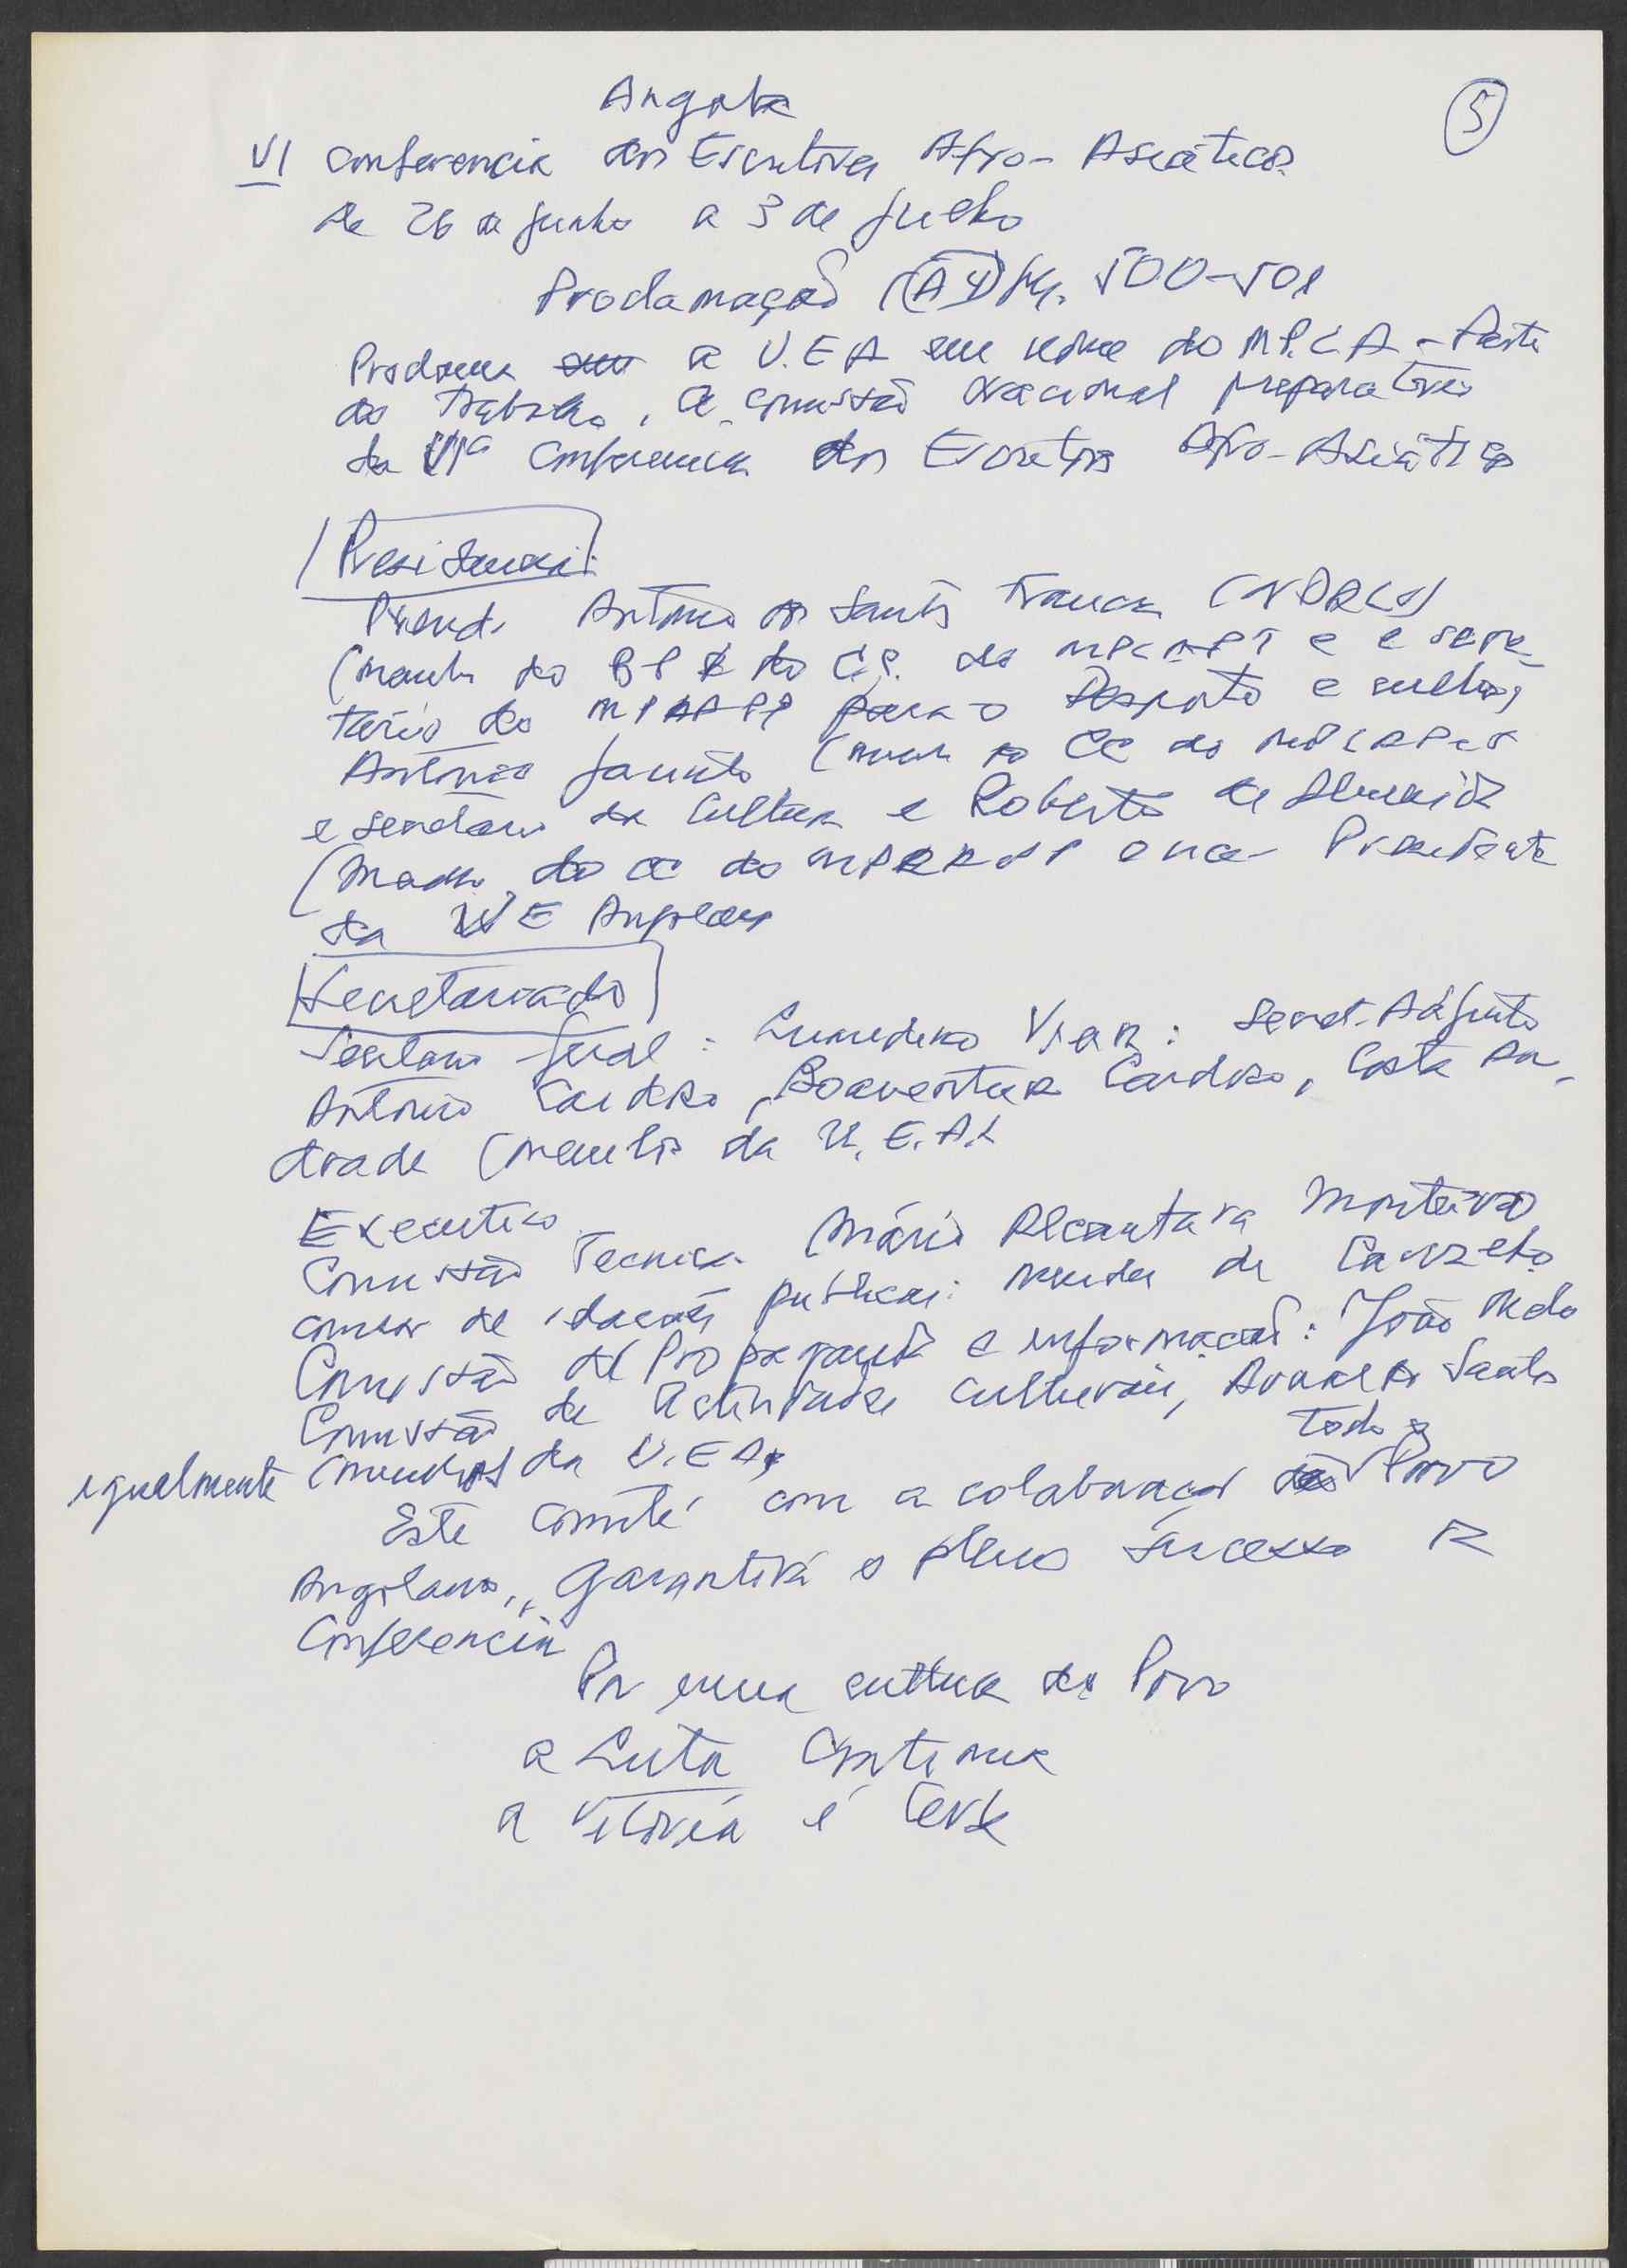 Angola
5
VI conferencia dos Escritores Afro-Asiáticos
de 26 de junho a 3 de Julho
Proclamação (A4) pg. 500-501
Proclama a U.E.A em nome do M.P.L.A - Partido
do Trabalho, a comissão nacional preparatória
da VIª Conferencia dos Escritores Afro-Asiáticos
Presidencia:
Antonio dos Santos França (NDALU)
(membro do BP do C.C. do MPLA PT e secre-
tário do MPLA PT para o Desporto e cultura,
Antonio Jacinto (membro do CC do MPLA PT
e secretário da cultura e Roberto de Almeida
(membro do CC do MPLA PT e vice-Presidente
da UE Angolanos
Secretariado
Secretario geral: Luandino Vieira: Secret. Adjunto
Antonio Cardoso, Boaventura Cardoso, Costa An-
drade (membros da U.E.A.)
Executivo
Comissão Tecnica Mário Alcantara Monteiro
de relações publicas: Mendes de Carvalho
Comissão de Propaganda e informação: João Melo
Comissão de actividades culturais, Arnaldo Santos
igualmente (membros da U.E.A.
todo o
Este comité com a colaboração de Povo
Angolano, garantirá o pleno sucesso da
Conferencia
Por uma cultura do Povo
a Luta Continua
a Vitória é Certa